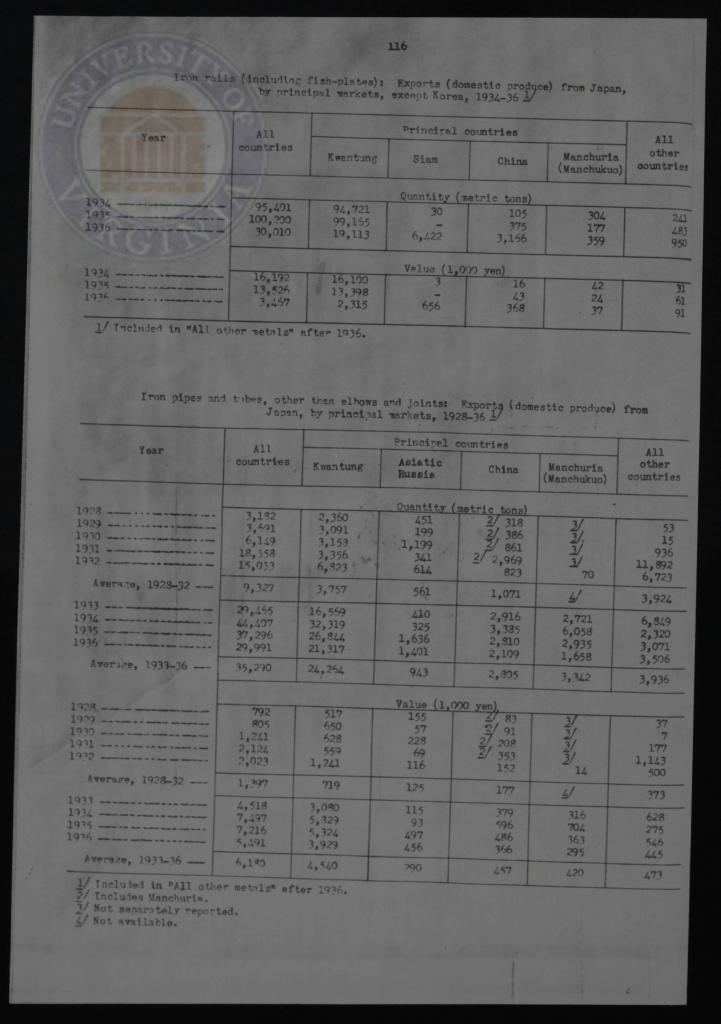 116
UNIVERSITY OF VIRGINIA
Iron rails (including fish-plates): Exports (domestic produce) from Japan,
by principal markets, except Korea, 1934-36 1/
Year | All countries | Principal countries | All other countries
Kwantung | Siam | China | Manchuria (Manchukuo)
Quantity (metric tons)
1934 95,401 94,721 30 105 304 241
1935 100,200 99,165 - 375 177 483
1936 30,010 19,113 6,422 3,166 359 950
Value (1,000 yen)
1934 16,192 16,100 3 16 42 31
1935 13,526 13,398 - 43 24 61
1936 3,467 2,315 656 368 37 91
1/ Included in "All other metals" after 1936.
Iron pipes and tubes, other than elbows and joints: Exports (domestic produce) from
Japan, by principal markets, 1928-36 1/
Year | All countries | Principal countries | All other countries
Kwantung | Asiatic Russia | China | Manchuria (Manchukuo)
Quantity (metric tons)
1928 3,182 2,360 451 2/ 318 3/ 53
1929 3,691 3,091 199 2/ 386 3/ 15
1930 6,149 3,153 1,199 2/ 861 3/ 936
1931 18,558 3,356 341 2/ 2,969 3/ 11,892
1932 15,053 6,823 614 823 70 6,723
Average, 1928-32 9,327 3,757 561 1,071 4/ 3,924
1933 29,465 16,569 410 2,916 2,721 6,849
1934 44,407 32,319 325 3,385 6,058 2,320
1935 37,296 26,844 1,636 2,810 2,935 3,071
1936 29,991 21,317 1,401 2,109 1,658 3,506
Average, 1933-36 35,290 24,264 943 2,805 3,342 3,936
Value (1,000 yen)
1928 792 517 155 2/ 83 3/ 37
1929 805 650 57 2/ 91 3/ 7
1930 1,241 628 228 2/ 208 3/ 177
1931 2,124 559 69 2/ 353 3/ 1,143
1932 2,023 1,241 116 152 14 500
Average, 1928-32 1,397 719 125 177 4/ 373
1933 4,518 3,080 115 379 316 628
1934 7,497 5,829 93 596 704 275
1935 7,216 5,324 497 486 363 546
1936 5,491 3,929 456 366 295 445
Average, 1933-36 6,180 4,540 290 457 420 473
1/ Included in "All other metals" after 1936.
2/ Includes Manchuria.
3/ Not separately reported.
4/ Not available.